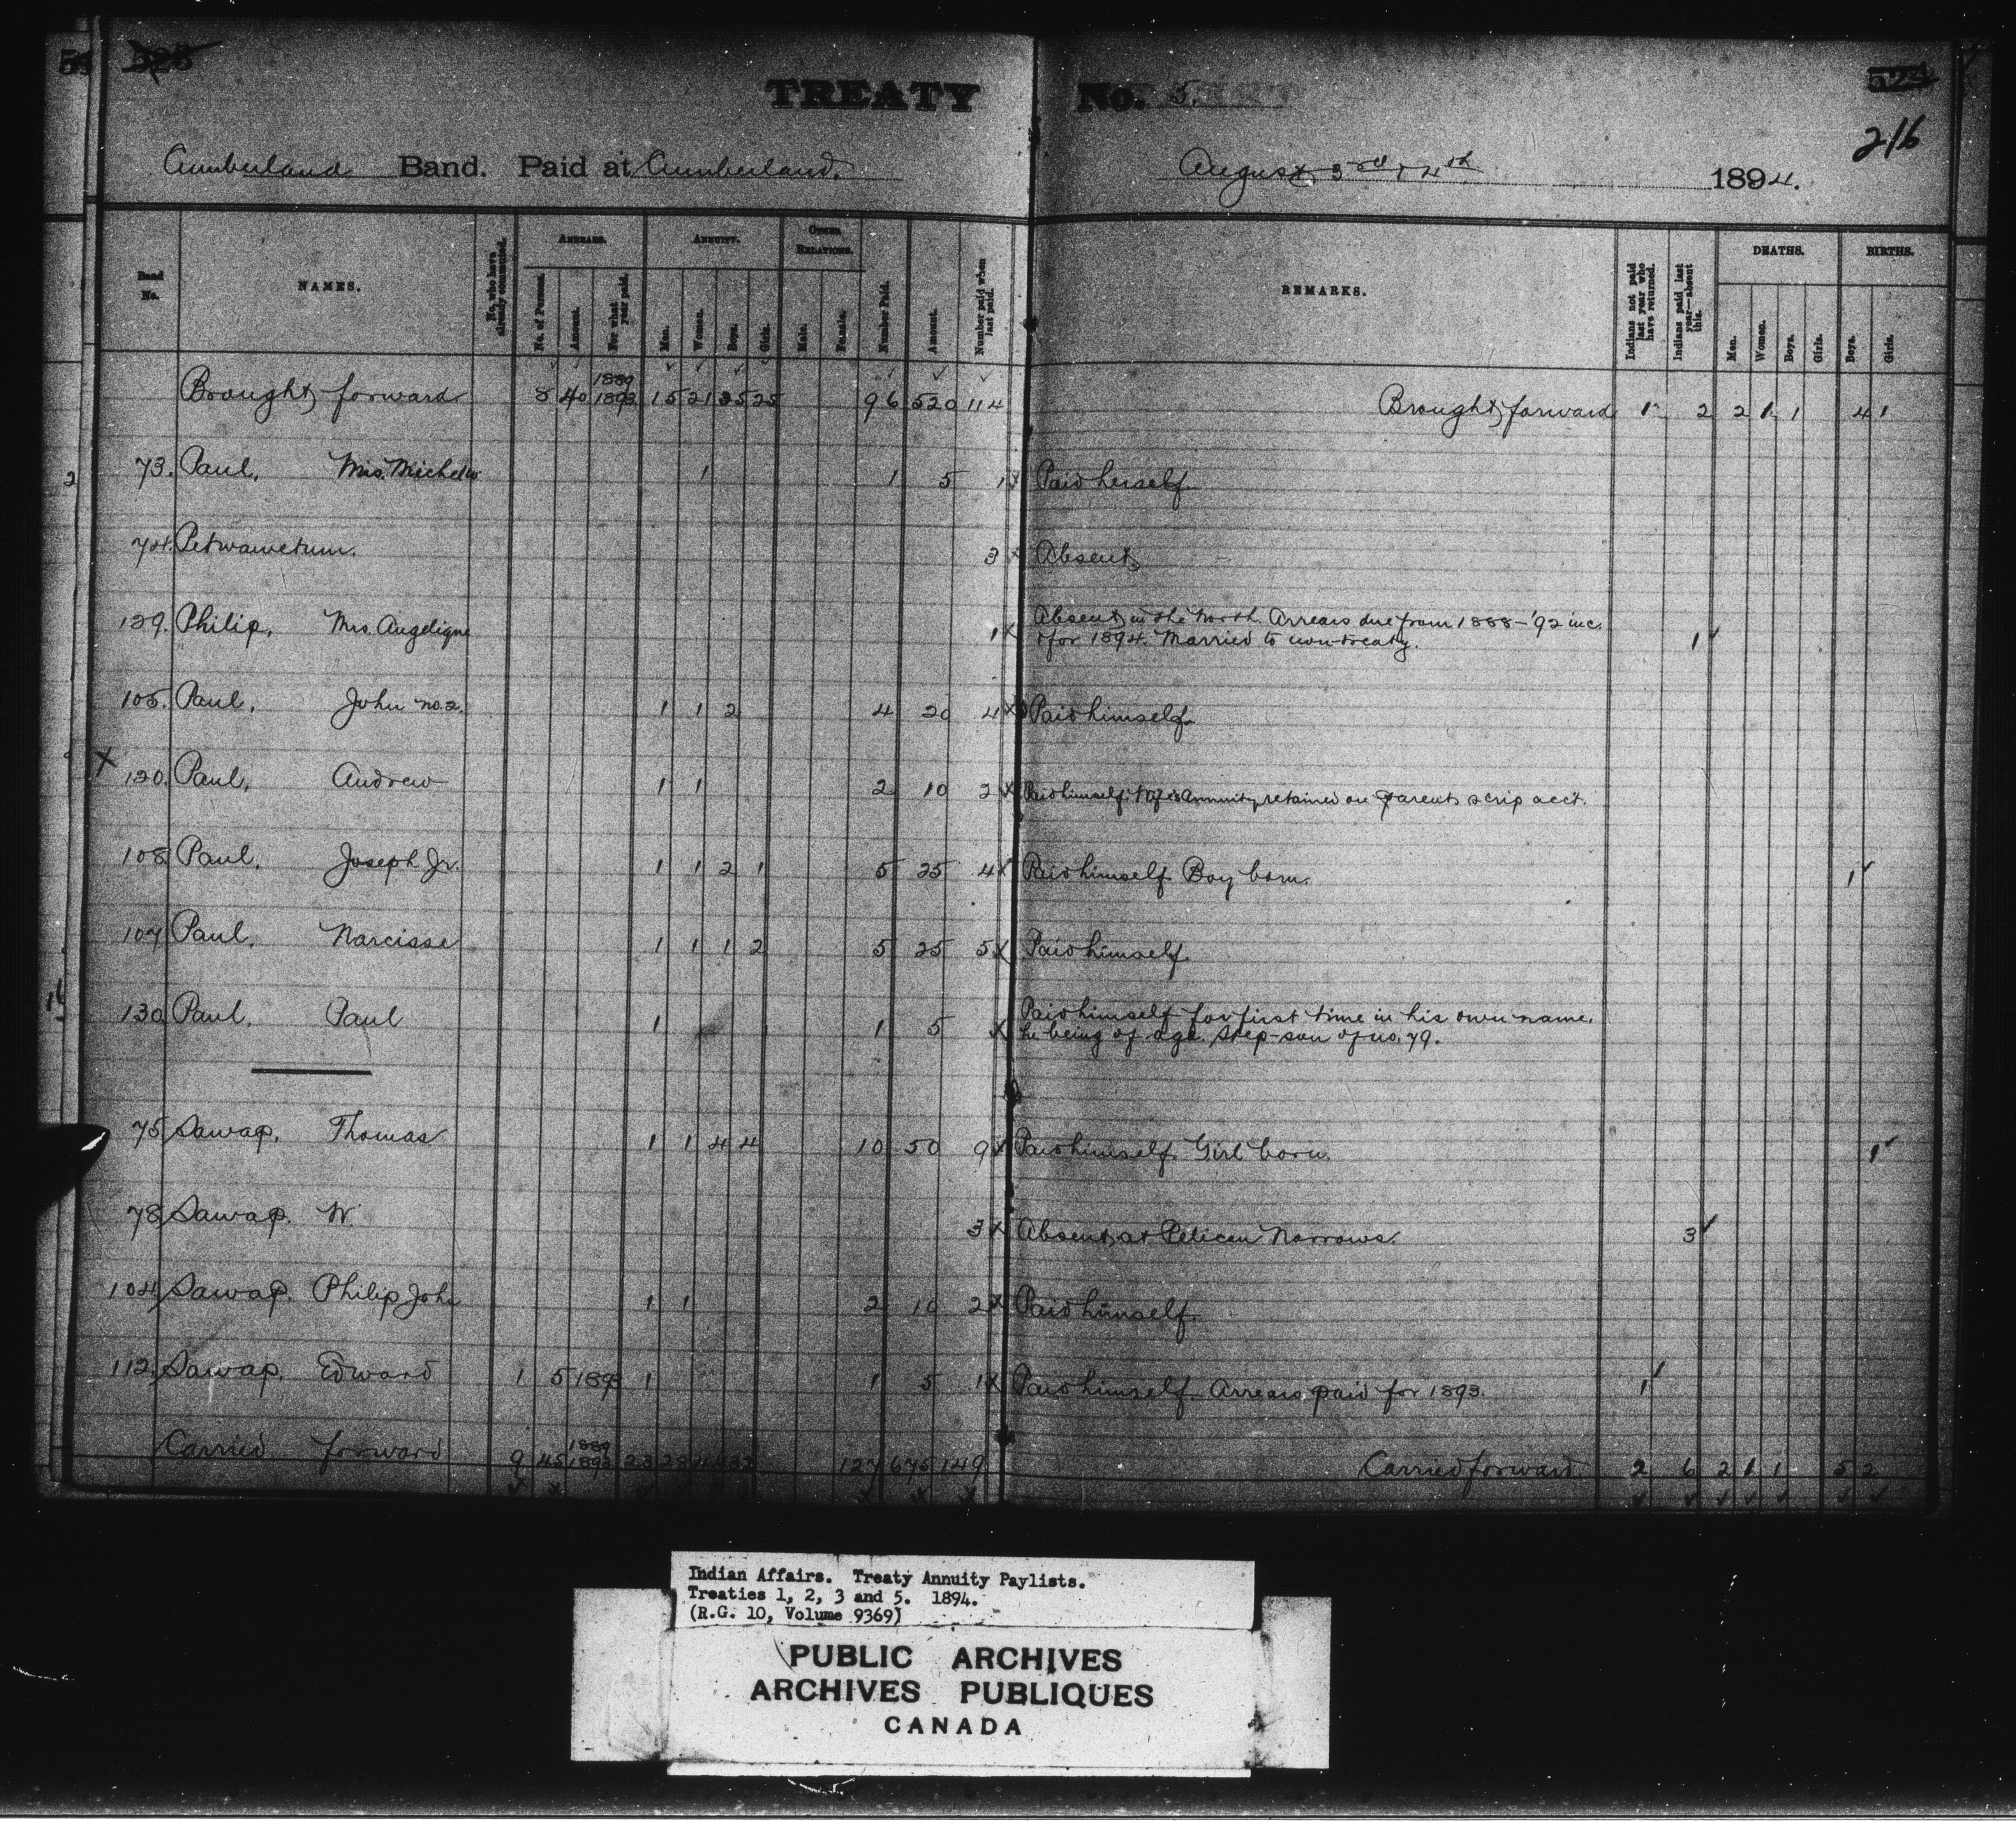 525
TREATY No. 5.
524
216
Cumberland Band. Paid at Cumberland. August 3rd & 4th 1894.
Band No. NAMES. No. who have already commuted. ARREARS. No. of Persons. Amount. For what year paid. ANNUITY. Men. Women. Boys. Girls. OTHER RELATIONS. Male. Female. Number Paid. Amount. Number paid when last paid. REMARKS. Indians not paid last year who have returned. Indians paid last year—absent this. DEATHS. Men. Women. Boys. Girls. BIRTHS. Boys. Girls.
Brought forward 8 40 1889 1893 15 21 35 25 96 520 114 Brought forward 1 2 2 1 1 4 1
73. Paul, Mrs. Michel 1 1 5 1 x Paid herself.
74. Petwawetum. 3 x Absent
129. Philip, Mrs. Angelique 1 x Absent in the North. Arrears due from 1888-'92 inc.
& for 1894. Married to non-treaty. 1
105. Paul, John no. 2. 1 1 2 4 20 4 x Paid himself.
x 120. Paul, Andrew 1 1 2 10 2 x Paid himself. Wife's Annuity retained on parents scrip acct.
108 Paul, Joseph Jr. 1 1 2 1 5 25 4 x Paid himself. Boy born. 1
107 Paul, Narcisse 1 1 1 2 5 25 5 x Paid himself.
130 Paul, Paul 1 1 5 x Paid himself for first time in his own name,
he being of age. Step-son of no. 79.
75 Sawap, Thomas 1 1 4 4 10 50 9 x Paid himself. Girl born. 1
78 Sawap. W. 3 x Absent at Pelican Narrows. 3
104 Sawap. Philip John 1 1 2 10 2 x Paid himself.
112 Sawap, Edward 1 5 1893 1 1 5 1 x Paid himself. Arrears paid for 1893. 1
Carried forward 9 45 1889 1893 23 29 127 675 149 Carried forward 2 6 2 1 1 5 2
Indian Affairs. Treaty Annuity Paylists.
Treaties 1, 2, 3 and 5. 1894.
(R.G. 10, Volume 9369)
PUBLIC ARCHIVES
ARCHIVES PUBLIQUES
CANADA